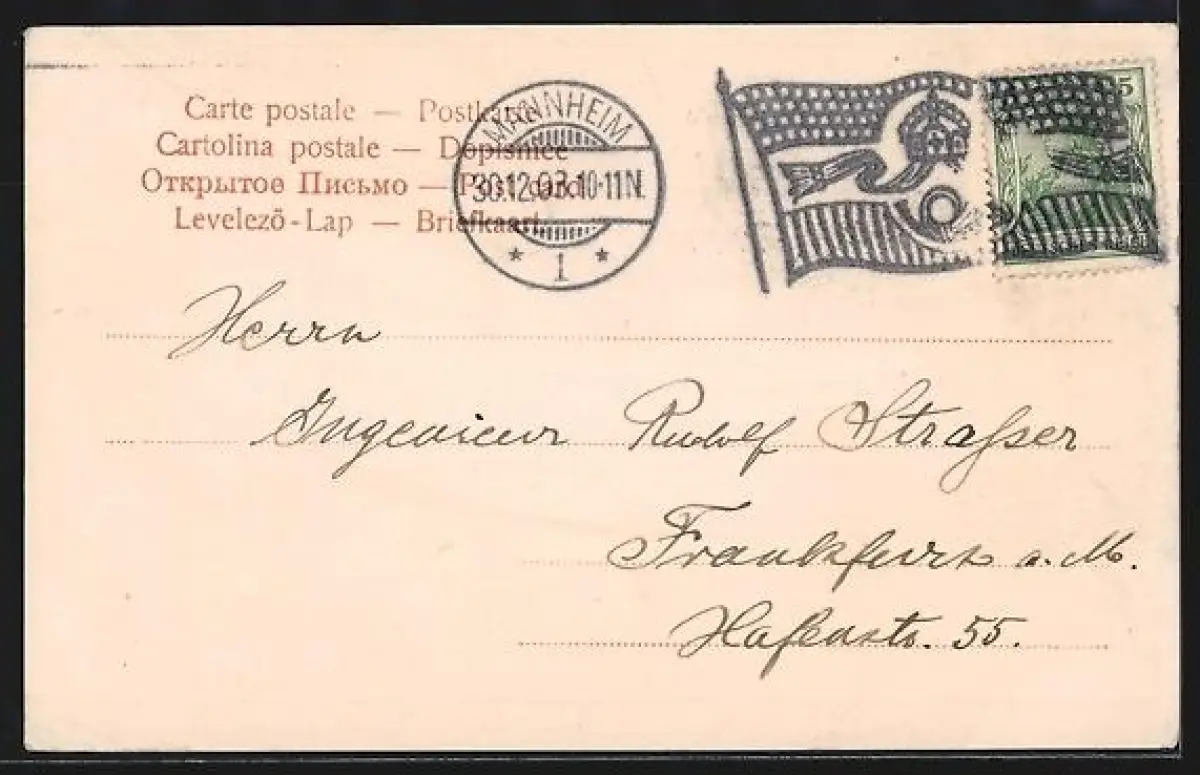 Carte postale — Postkarte
Cartolina postale — Dopisnice
Открытое Письмо — Post card
Levelező-Lap — Briefkaart
MANNHEIM
30.12.03.10-11N.
* 1 *
5
Herrn
Ingenieur Rudolf Straßer
Frankfurt a. M.
Hafenstr. 55.